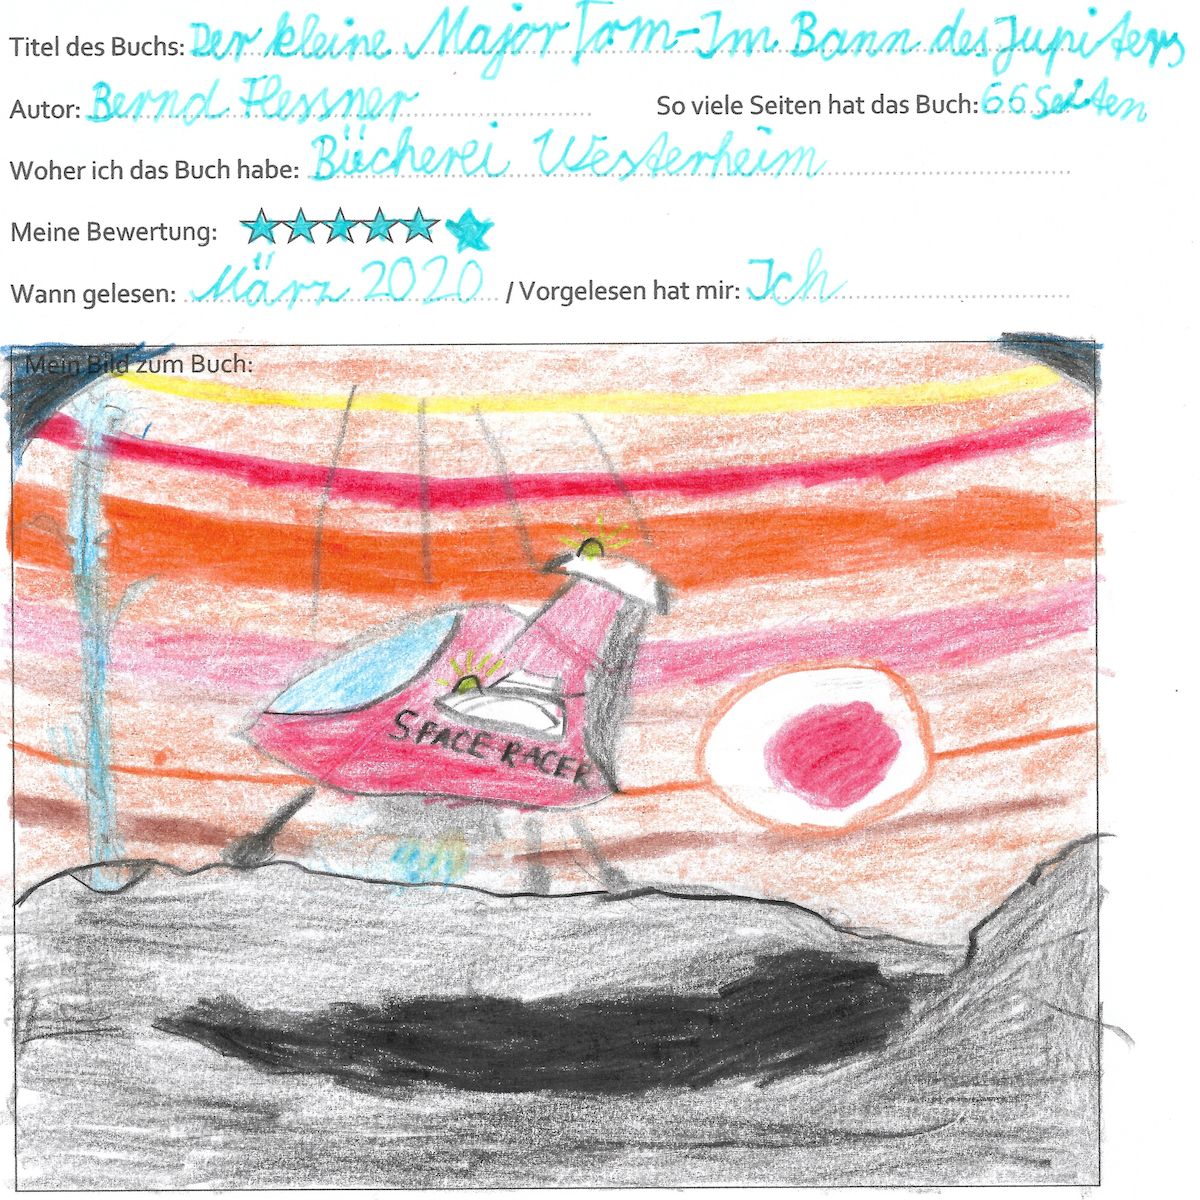 Titel des Buchs: Der kleine Major Tom-Im Bann des Jupiters
Autor: Bernd Flessner So viele Seiten hat das Buch: 66 Seiten
Woher ich das Buch habe: Bücherei Westerheim
Meine Bewertung:
Wann gelesen: März 2020 / Vorgelesen hat mir: Ich
Mein Bild zum Buch:
SPACE-RACER